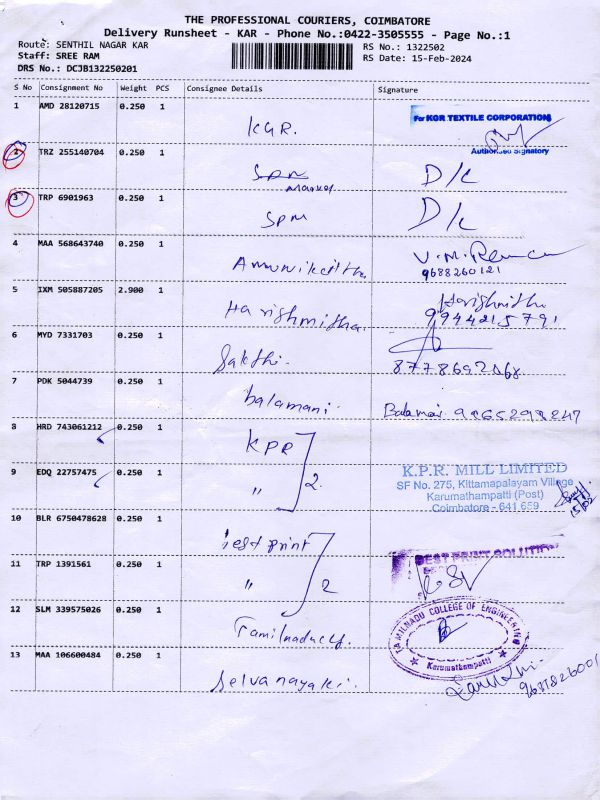 THE PROFESSIONAL COURIERS, COIMBATORE
Delivery Runsheet - KAR - Phone No.:0422-3505555 - Page No.:1
Route: SENTHIL NAGAR KAR
RS No.: 1322502
Staff: SREE RAM
RS Date: 15-Feb-2024
DRS No.: DCJB132250201
S No Consignment No Weight PCS Consignee Details Signature
1 AMD 28120715 0.250 1 KGR.
For KGR TEXTILE CORPORATION
Authorised Signatory
2 TRZ 255140704 0.250 1 SPM D/c
Market
3 TRP 6901963 0.250 1 SPM D/c
4 MAA 568643740 0.250 1
9688260121
5 IXM 505887205 2.900 1 Harishmitha. Harishmitha
9944215791
6 MYD 7331703 0.250 1 Sakthi.
7 PDK 5044739 0.250 1 balamani. 9865298247
8 HRD 743061212 0.250 1 KPR
9 EDQ 22757475 0.250 1 " 2
K.P.R. MILL LIMITED
SF No. 275, Kittamapalayam Village
Karumathampatti (Post)
Coimbatore - 641 659
10 BLR 6750478628 0.250 1 print
BEST PRINT SOLUTION
11 TRP 1391561 0.250 1 " 2
12 SLM 339575026 0.250 1
TAMILNADU COLLEGE OF ENGINEERING
Karumathampatti
13 MAA 106600484 0.250 1 Selvanayaki.